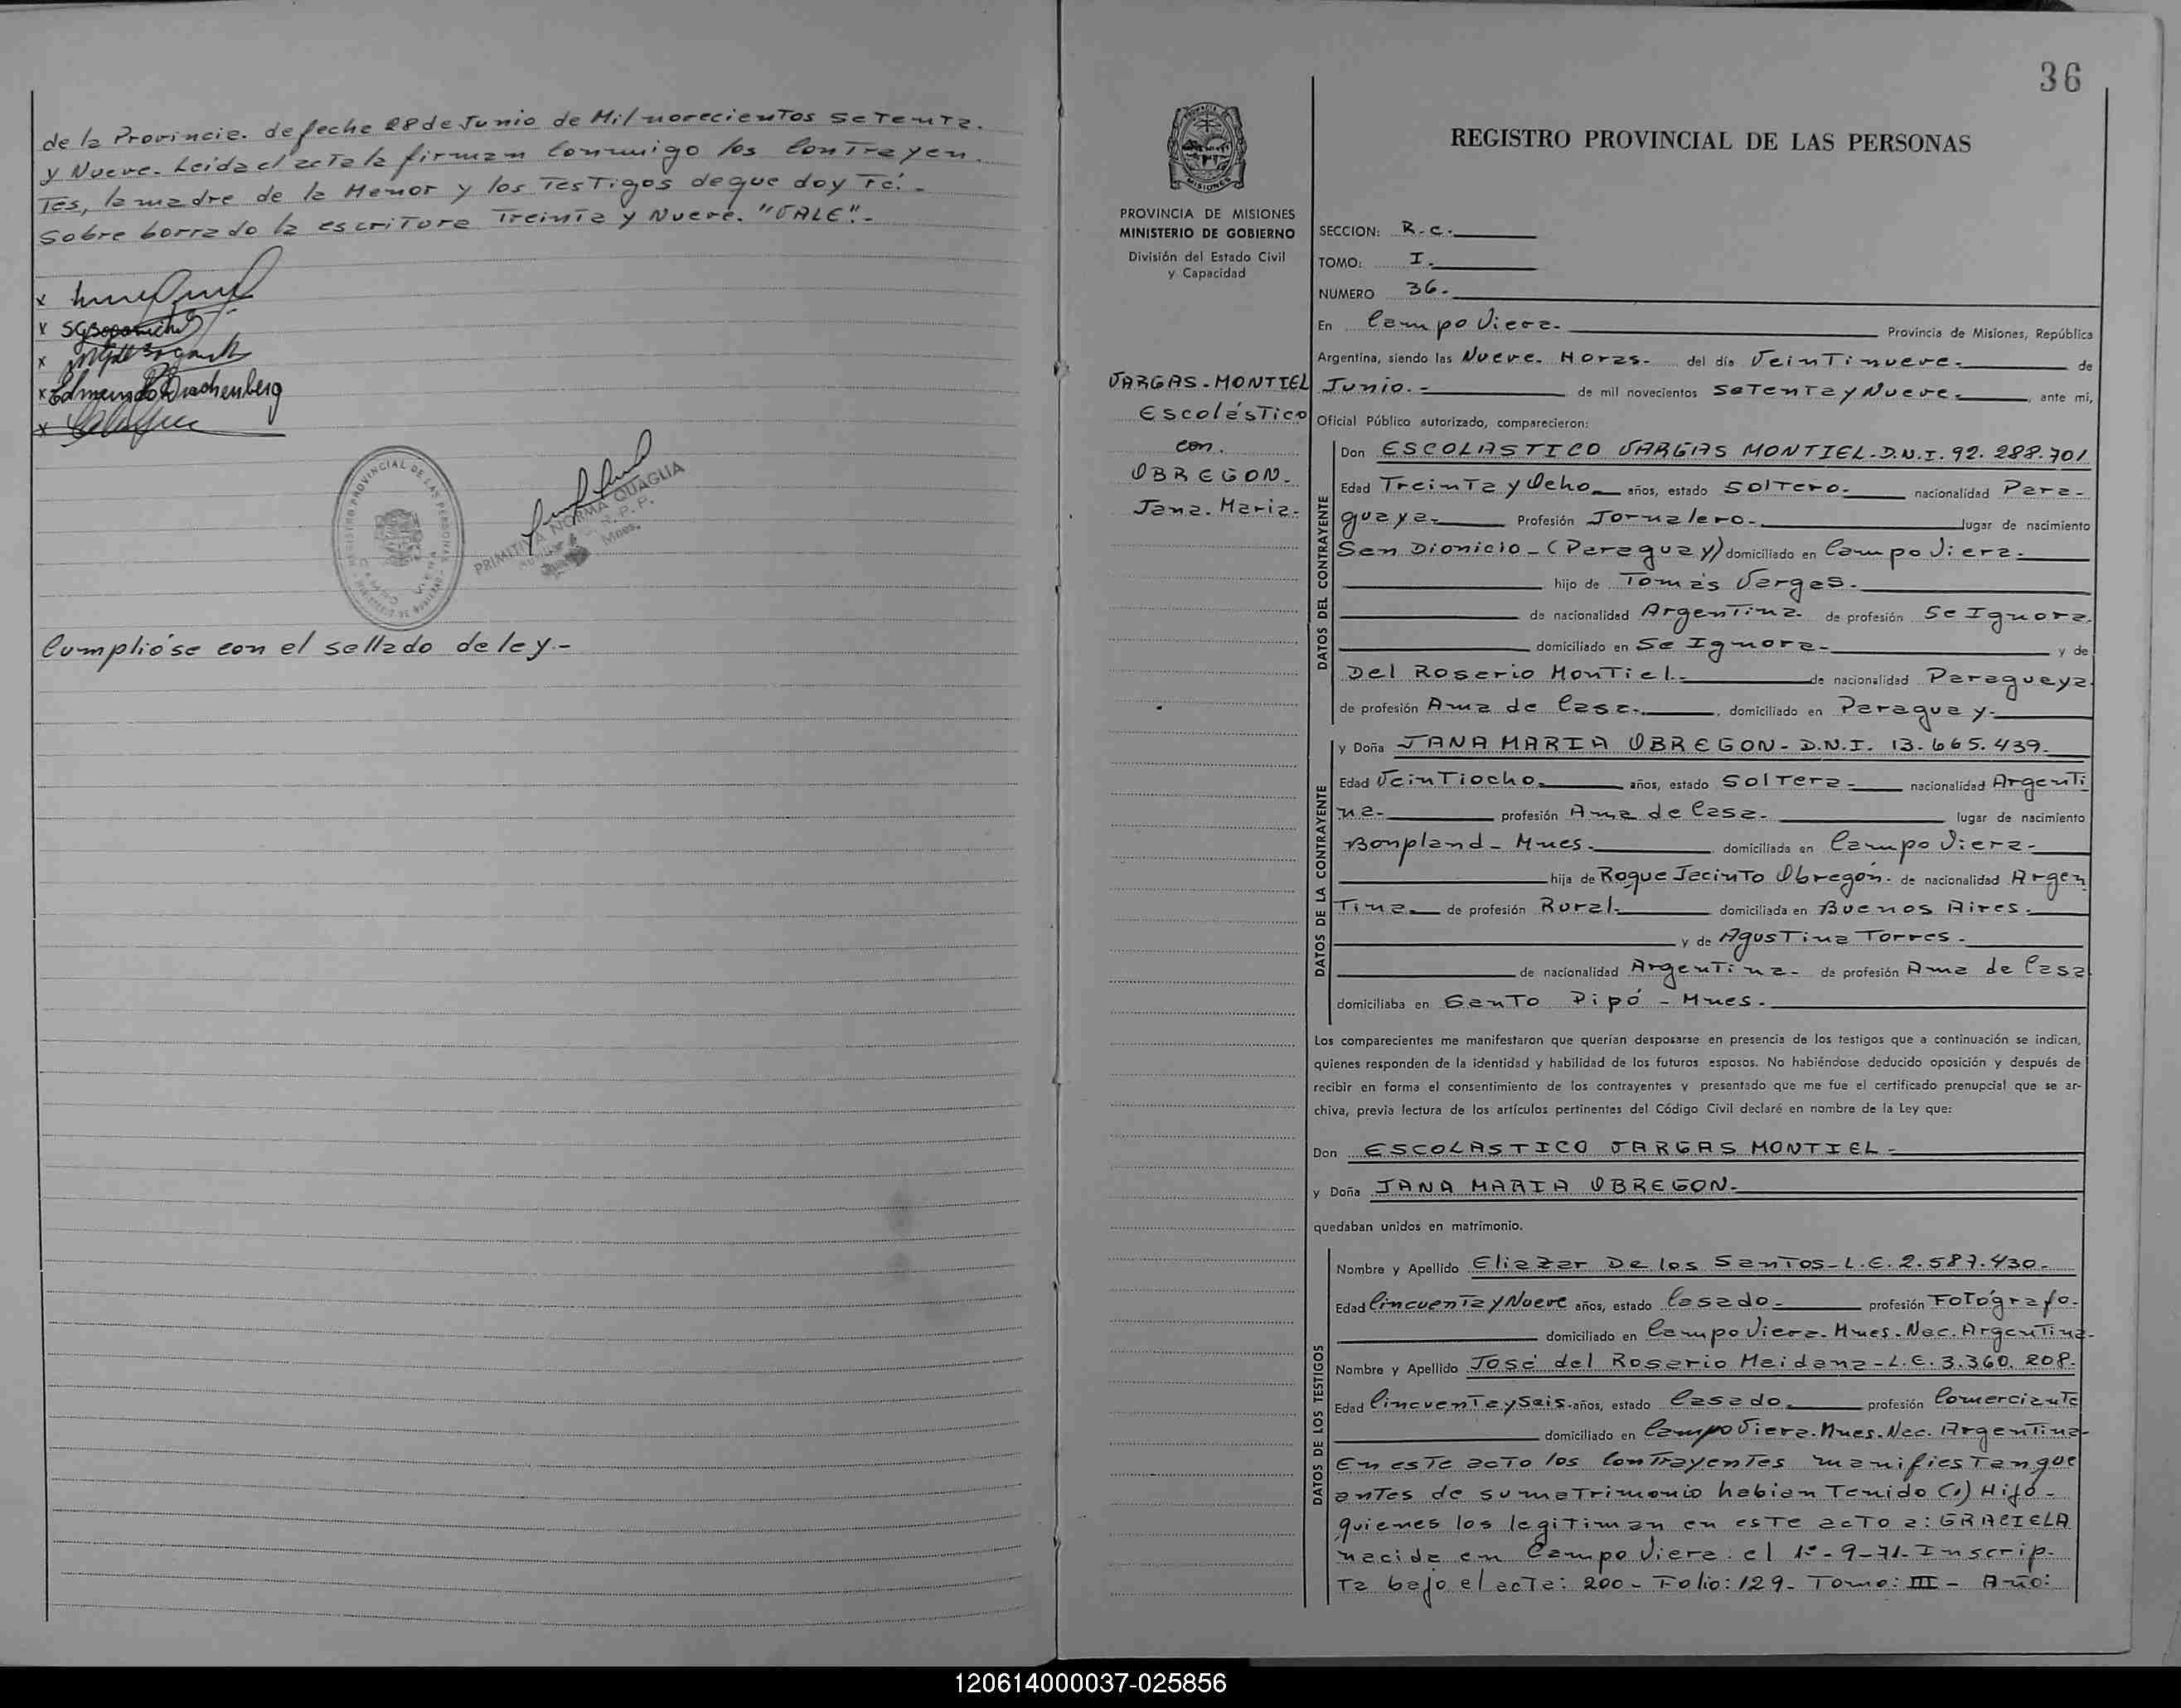 de la Provincia. de fecha 28 de Junio de Mil novecientos setenta.
y Nueve. Leida el acta la firman conmigo los Contrayen.
Tes, la madre de la Menor y los Testigos de que doy Fé.-
Sobre borrado la escritura Treinta y Nueve. "VALE".-
x
x
x
x Edmundo Drachenberg
x
REGISTRO PROVINCIAL DE LAS PERSONAS
PRIMITIVA NORMA QUAGLIA
R.P.P.
Mnes.
Cumplióse con el sellado de ley.-
36
REGISTRO PROVINCIAL DE LAS PERSONAS
PROVINCIA DE MISIONES
MINISTERIO DE GOBIERNO
División del Estado Civil
y Capacidad
VARGAS-MONTIEL
Escolástico
con.
OBREGON.
Jana. Maria-
SECCION: R.C.
TOMO: I.
NUMERO 36.
En Campo Viera. Provincia de Misiones, República
Argentina, siendo las Nueve. Horas- del día Veintinueve. de
Junio.- de mil novecientos Setenta y Nueve. , ante mí,
Oficial Público autorizado, comparecieron:
DATOS DEL CONTRAYENTE
Don ESCOLASTICO VARGAS MONTIEL.D.N.I. 92.288.701
Edad Treinta y Ocho años, estado Soltero. nacionalidad Para-
guaya- Profesión Jornalero. lugar de nacimiento
San Dionicio-(Paraguay) domiciliado en Campo Viera.
hijo de Tomás Vargas.
de nacionalidad Argentina- de profesión Se Ignora.
domiciliado en Se Ignora- y de
Del Rosario Montiel.- de nacionalidad Paraguaya.
de profesión Ama de Casa. , domiciliado en Paraguay.
DATOS DE LA CONTRAYENTE
y Doña JANA MARIA OBREGON- D.N.I. 13.665.439.
Edad Veintiocho. años, estado Soltera- nacionalidad Argenti
na- profesión Ama de Casa. lugar de nacimiento
Bonpland- Mnes. domiciliada en Campo Viera-
hija de Roque Jacinto Obregón. de nacionalidad Argen
Tina de profesión Rural. domiciliada en Buenos Aires.
y de Agustina Torres.
de nacionalidad Argentina- de profesión Ama de Casa
domiciliaba en Santo Pipó - Mnes.
Los comparecientes me manifestaron que querían desposarse en presencia de los testigos que a continuación se indican,
quienes responden de la identidad y habilidad de los futuros esposos. No habiéndose deducido oposición y después de
recibir en forma el consentimiento de los contrayentes y presentado que me fue el certificado prenupcial que se ar-
chiva, previa lectura de los artículos pertinentes del Código Civil declaré en nombre de la Ley que:
Don ESCOLASTICO VARGAS MONTIEL-
y Doña JANA MARIA OBREGON.
quedaban unidos en matrimonio.
DATOS DE LOS TESTIGOS
Nombre y Apellido Eliazar De los Santos-L.E.2.587.430.
Edad Cincuenta y Nueve años, estado Casado. profesión Fotógrafo.
domiciliado en Campo Viera-Mnes.Nac.Argentina-
Nombre y Apellido José del Rosario Maidana-L.E.3.360.208.
Edad Cincuenta y Seis-años, estado Casado. profesión Comerciante
domiciliado en Campo Viera.Mnes.Nac. Argentina-
En este acto los Contrayentes manifiestan que
antes de su matrimonio habian Tenido (1) Hijo-
quienes los legitiman en este acto a: GRACIELA
nacida en Campo Viera el 1º-9-71-Inscrip-
ta bajo el acta: 200- Folio:129- Tomo: III - Año:
120614000037-025856